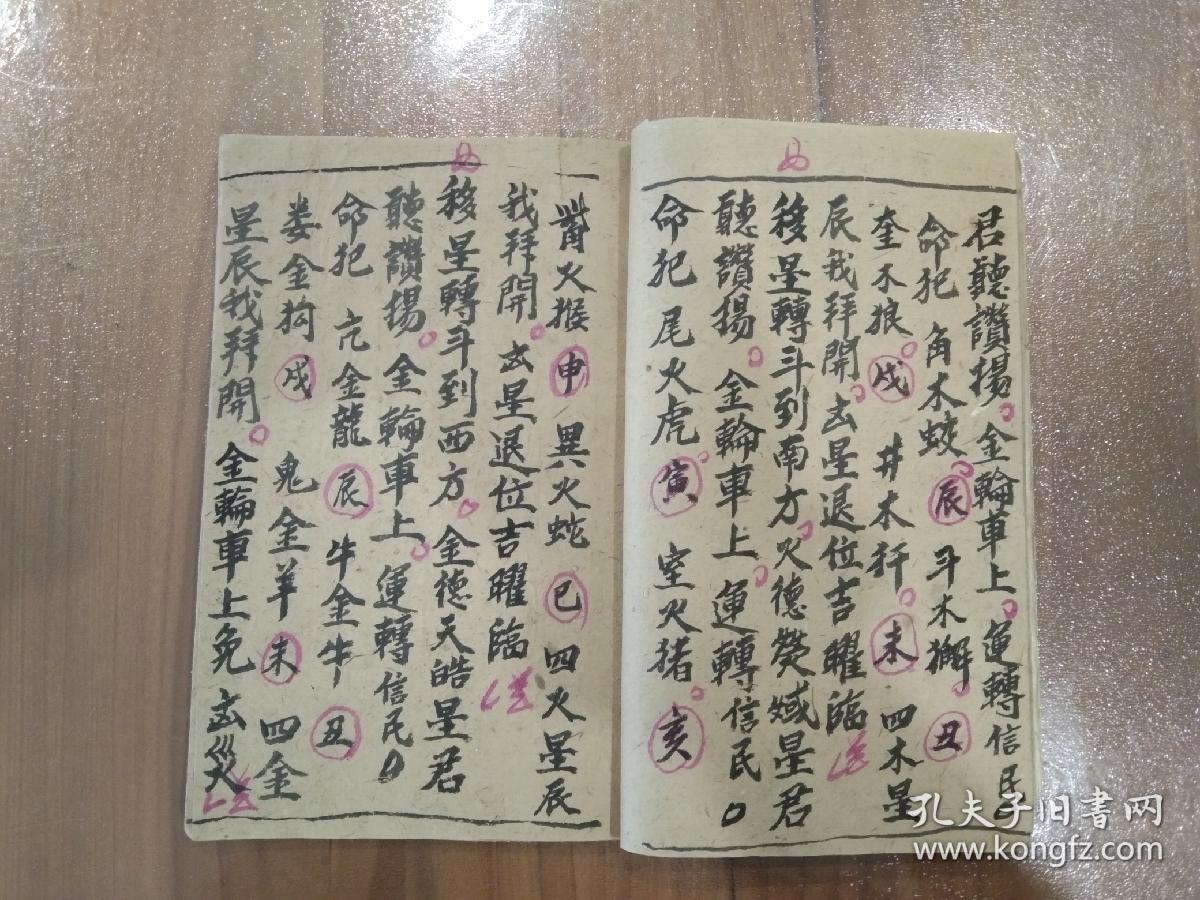 君聽讚揚。金輪車上。運轉信民〇
命犯 角木蛟。辰 斗木獬。丑
奎木狼。戌 井木犴。未 四木星
辰我拜開。去星退位吉曜臨
移星轉斗到南方。火德熒惑星君
聽讚揚。金輪車上。運轉信民〇
命犯 尾火虎。寅 室火猪。亥
觜火猴 申 異火蛇 巳 四火星辰
我拜開。去星退位吉曜臨
移星轉斗到西方。金德天皓星君
聽讚揚。金輪車上。運轉信民〇
命犯 亢金龍 辰 牛金牛 丑
娄金狗 戌 鬼金羊 未 四金
星辰我拜開。金輪車上免 災
孔夫子旧书网
www.kongfz.com